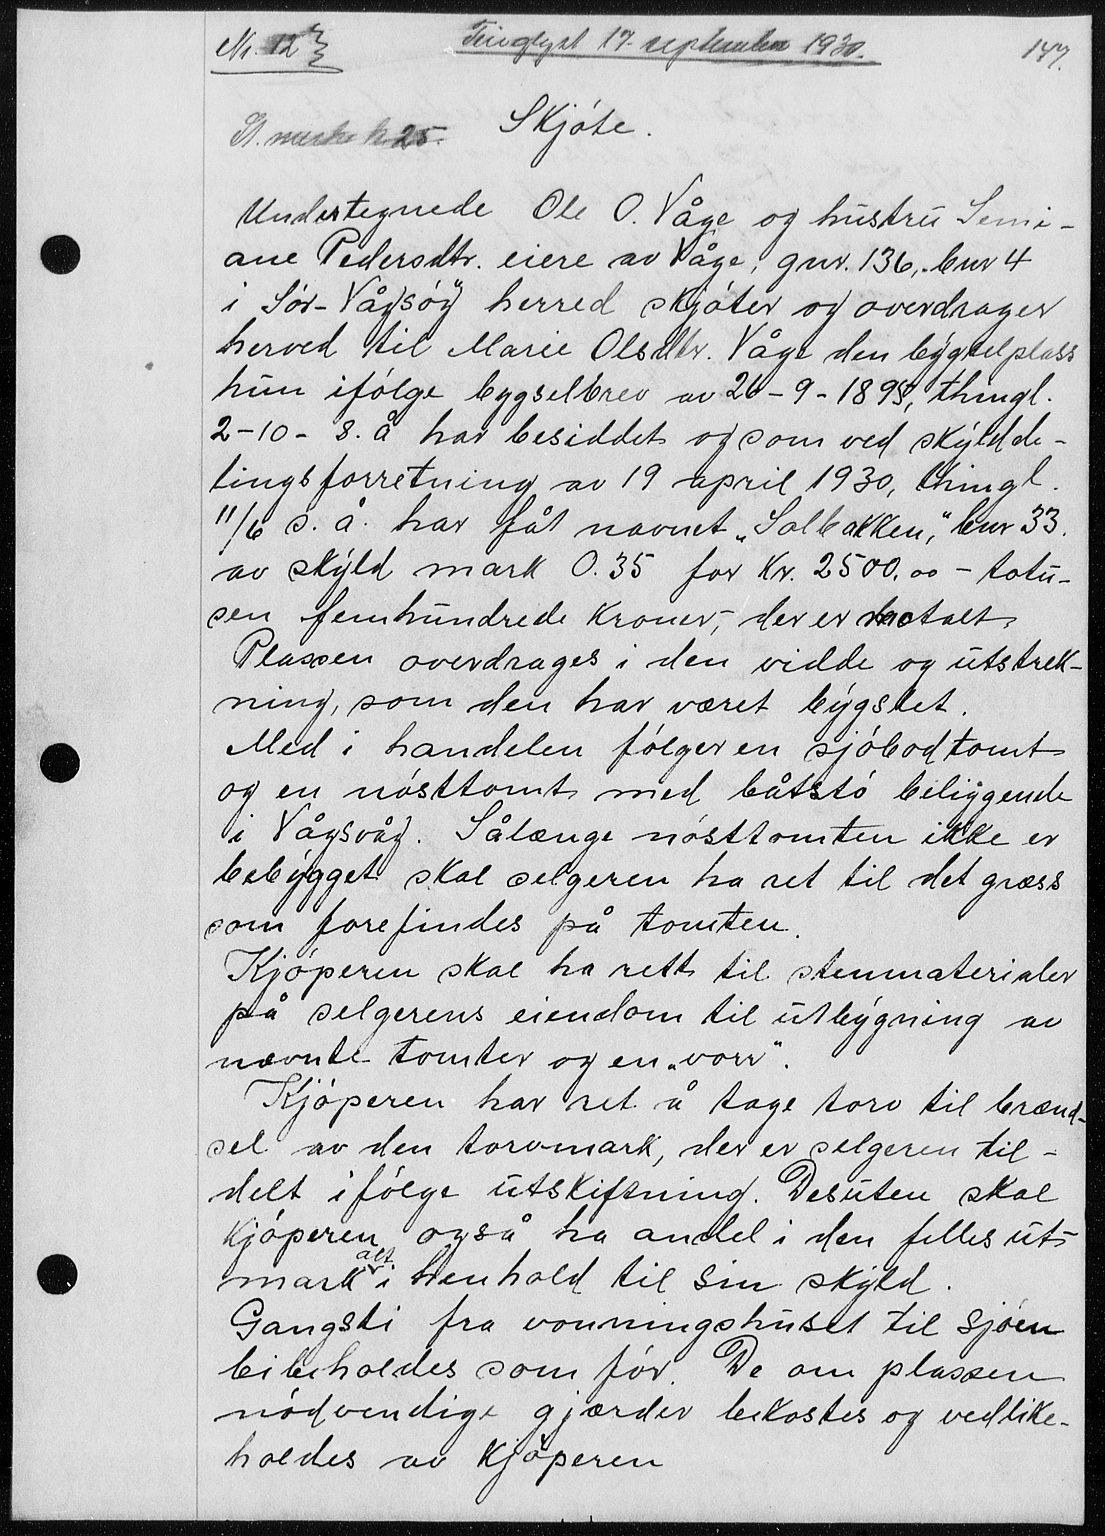 Nr. 12
Tinglyst 17. september 1930.
147.
St. merke kr. 25.
Skjøte.
Undertegnede Ole O. Våge og hustru Semi-
ane Pedersdtr. eiere av Våge, gnr. 136, bnr 4
i Sør-Vågsøy herred skjøter og overdrager
herved til Marie Olsdtr. Våge den bygselplass
hun ifølge bygselbrev av 26-9-1895, thingl.
2-10- s. å har besiddet og som ved skyldde-
lingsforretning av 19 april 1930, thingl.
11/6 s. å. har fåt navnet „Solbakken," bnr 33.
av skyld mark 0.35 for kr. 2500,00 - totu-
sen femhundrede kroner,- der er
Plassen overdrages i den vidde og utstrek-
ning, som den har været bygslet.
Med i handelen følger en sjøbodtomt
og en nøsttomt med båtstø beliggende
i Vågsvåg. Sålænge nøsttomten ikke er
bebygget skal selgeren ha ret til det græss
som forefindes på tomten.
Kjøperen skal ha rett til stenmaterialer
på selgerens eiendom til utbygning av
nævnte tomter og en „vorr".
Kjøperen har ret å tage torv til brænd-
sel av den torvmark, der er selgeren til-
delt ifølge utskiftning. Desuten skal
kjøperen også ha andel i den felles ut-
mark alt i henhold til sin skyld.
Gangsti fra vonningshuset til sjøen
beibeholdes som før. De om plassen
nødvendige gjærder bekostes og vedlike-
holdes av kjøperen